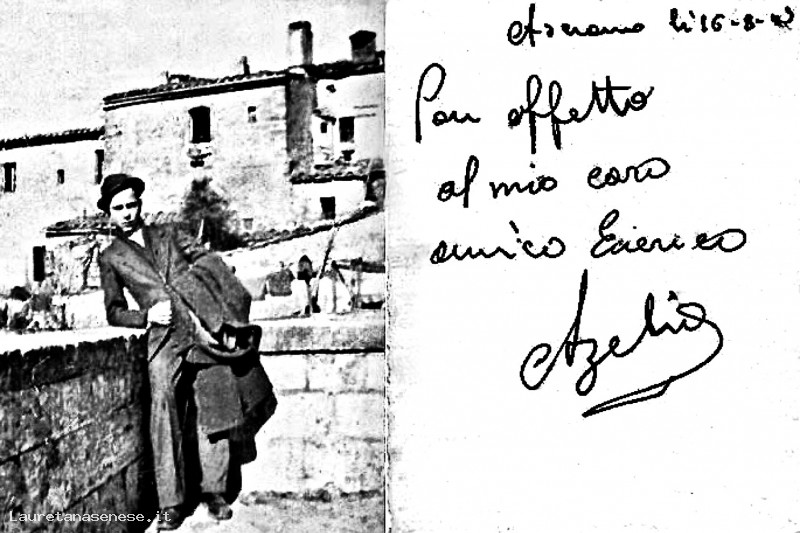 Asciano lì 16-8-42
Con affetto
al mio caro
amico Enerico
Azelio
Lauretanasenese.it